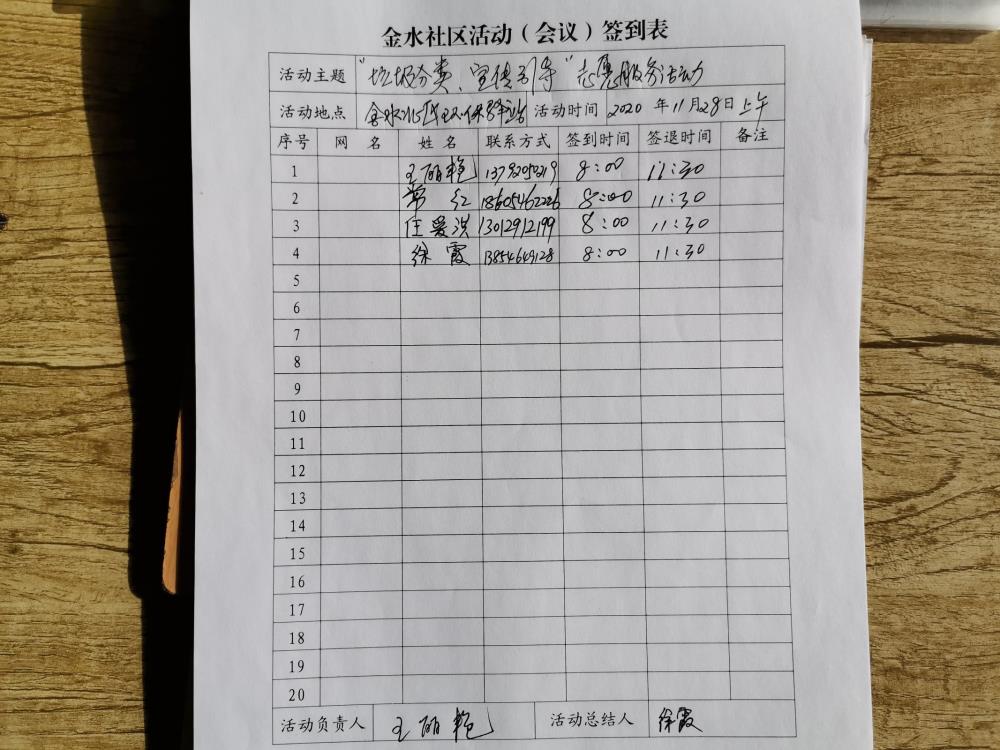 金水社区活动（会议）签到表
活动主题 "垃圾分类、宣传引导"志愿服务活动
活动地点 金水社区 活动时间 2020年11月28日上午
序号 网名 姓名 联系方式 签到时间 签退时间 备注
1 王丽艳 13792050219 8:00 11:30
2 常红 18605462226 8:00 11:30
3 任爱洪 13012912199 8:00 11:30
4 徐霞 13854649128 8:00 11:30
5
6
7
8
9
10
11
12
13
14
15
16
17
18
19
20
活动负责人 王丽艳 活动总结人 徐霞